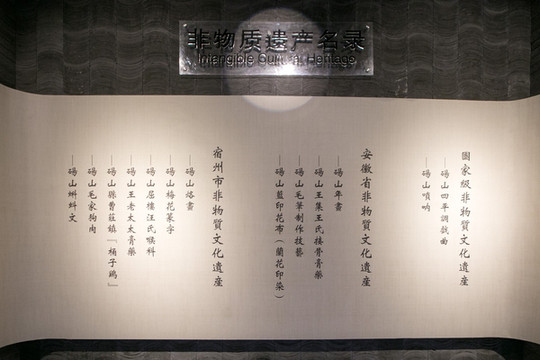 非物质遗产名录
Intangible Cultural Heritage
國家级非物質文化遺産
—碭山四平調戲曲
—碭山嗩吶
安徽省非物質文化遺産
—碭山年畫
—碭山王集王氏接骨膏藥
—碭山毛筆制作技藝
—碭山藍印花布（蘭花印染）
宿州市非物質文化遺産
—碭山烙畫
—碭山梅花篆字
—碭山屈樓汪氏喉科
—碭山王老太太膏藥
—碭山縣曹莊鎮『桶子鷄』
—碭山毛家狗肉
—碭山蝌蚪文